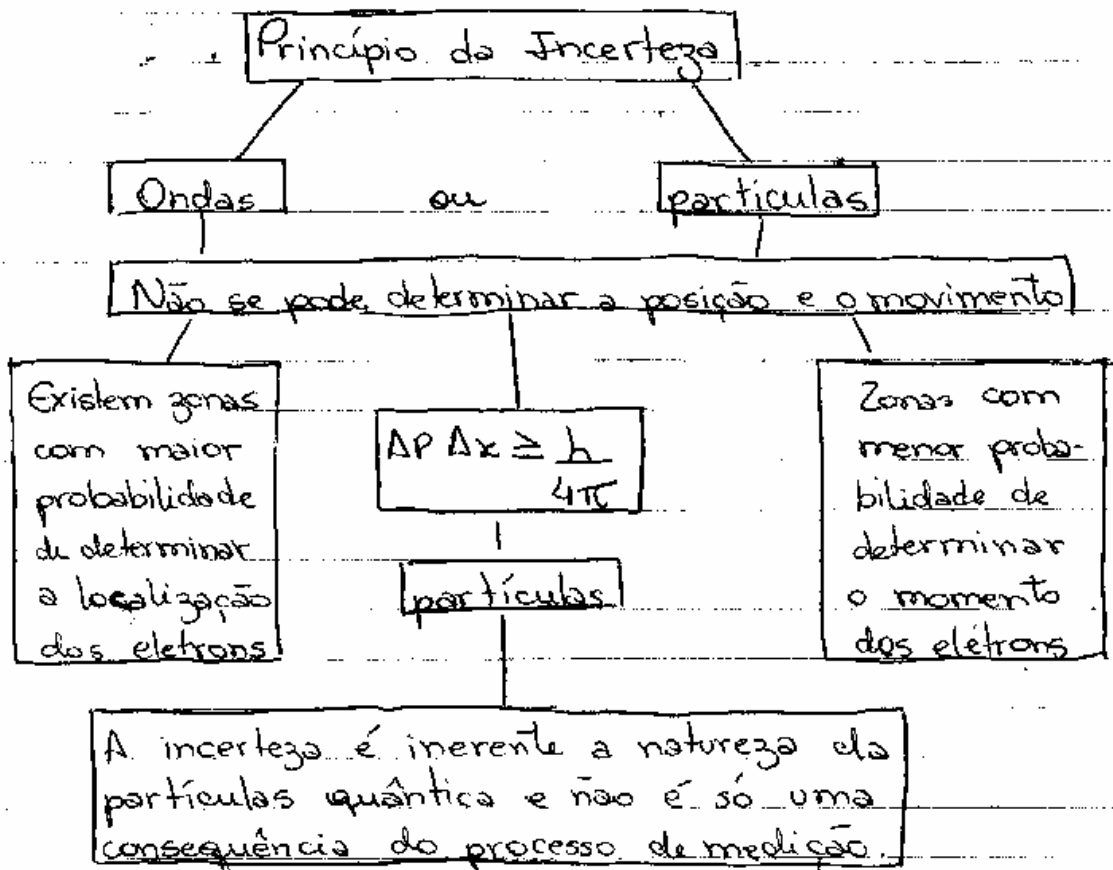 Princípio da Incerteza
Ondas ou partículas
Não se pode determinar a posição e o movimento
Existem zonas
com maior
probabilidade
de determinar
a localização
dos eletrons
ΔP Δx ≥ h
4π
partículas
Zonas com
menor proba-
bilidade de
determinar
o momento
dos elétrons
A incerteza é inerente a natureza da
partículas quântica e não é só uma
consequência do processo de medição.